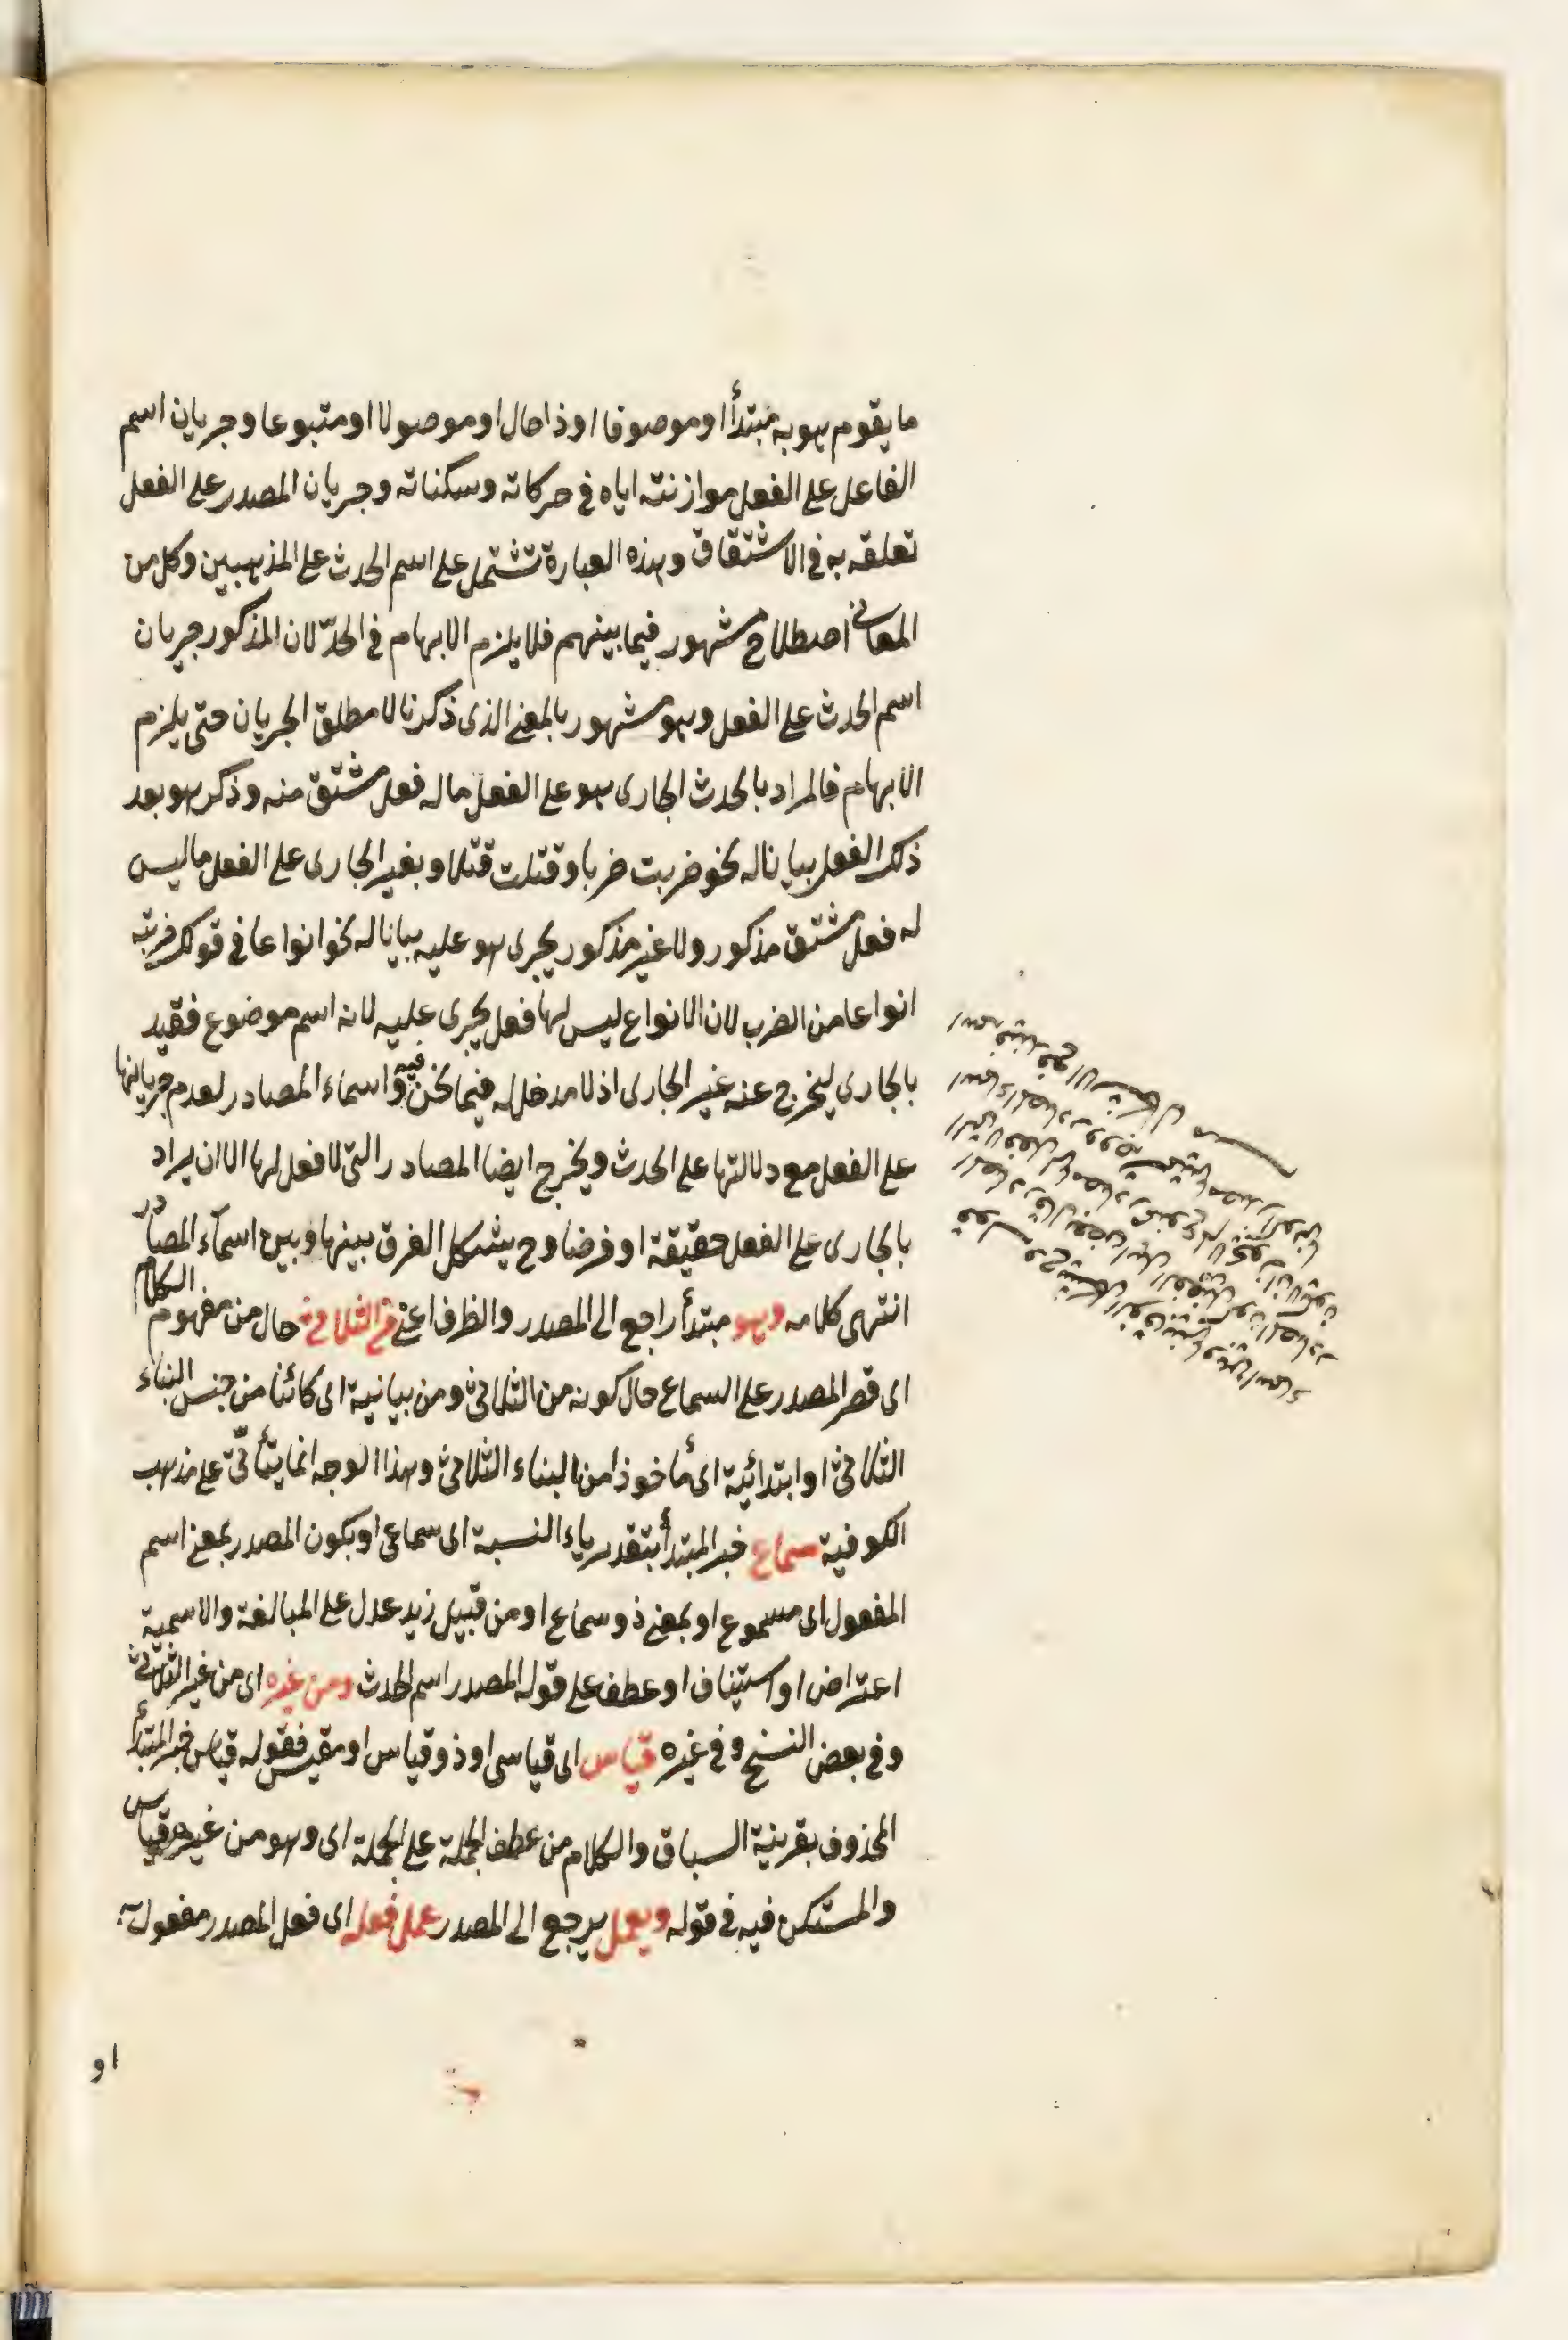 ما يقوم هو به مبتدأ او موصوفا او ذا حال او موصولا او متبوعا وجريان اسم
الفاعل على الفعل موازنته اياه فى حركاته وسكناته وجريان المصدر على الفعل
تعلقه به فى الاشتقاق وهذه العبارة تشتمل على اسم الحدث على المذهبين وكل من
المعانى اصطلاح مشهور فيما بينهم فلا يلزم الابهام فى الحدّ لان المذكور جريان
اسم الحدث على الفعل وهو مشهور بالمعنى الذى ذكرنا لا مطلق الجريان حتى يلزم
الابهام فالمراد بالحدث الجارى هو على الفعل ما له فعل مشتق منه وذكر هو بعد
ذلك الفعل بيانا له نحو ضربت ضربا وقتلت قتلا وبغير الجارى على الفعل ما ليس
له فعل مشتق مذكور ولا غير مذكور يجرى هو عليه بيانا له نحو انواعا فى قولك ضربته
انواعا من الضرب لان الانواع ليس لها فعل يجرى عليه لانه اسم موضوع فقيد
بالجارى ليخرج عنه غير الجارى اذ لا مدخل له فيما نحن فيه واسماء المصادر لعدم جريانها
على الفعل مع دلالتها على الحدث ويخرج ايضا المصادر التى لا فعل لها الا ان يراد
بالجارى على الفعل حقيقة او فرضا وح يشكل الفرق بينها وبين اسمآء المصادر
انتهى كلامه وهو مبتدأ راجع الى المصدر والظرف اعنى من الثلاثى حال من مفهوم الكلام
اى قصر المصدر على السماع حال كونه من الثلاثى ومن بيانية اى كائنا من جنس البناء
الثلاثى او ابتدائية اى مأخوذا من البناء الثلاثى وهذا الوجه انما يتأتّى على مذهب
الكوفية سماع خبر المبتدأ بتقدير ياء النسبة اى سماعى او بكون المصدر بمعنى اسم
المفعول اى مسموع او بمعنى ذو سماع او من قبيل زيد عدل على المبالغة والاسمية
اعتراض او استيناف او عطف على قوله المصدر اسم الحدث ومن غيره اى من غير الثلاثى
وفى بعض النسخ وفى غيره قياس اى قياسى او ذو قياس او مقيس فقوله قياس خبر المبتدأ
المحذوف بقرينة السباق والكلام من عطف الجملة على الجملة اى وهو من غيره قياس
والمستكن فيه فى قوله ويعمل يرجع الى المصدر عمل فعله اى فعل المصدر مفعول به
او